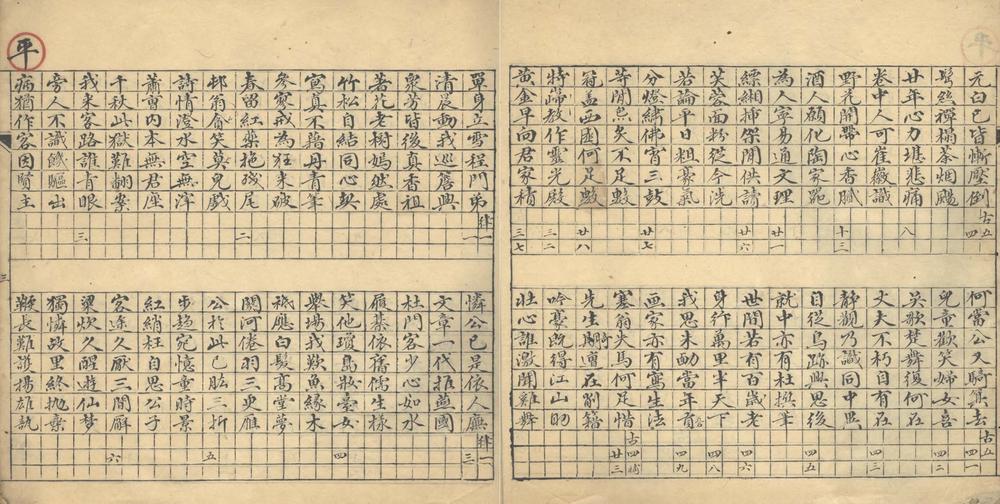 元白已皆慚壓倒 古五 四
鬢絲禪榻茶烟颺
廿年心力堪悲痛 八
卷中人可崔徽識
野花開帶心香賦 十三
酒人願化陶家器
為人寧易通文理 廿一
縹緗插架閒供讀 廿六
芙蓉面粉從今洗
若論平日粗豪氣
分燈繡佛宵三鼓 廿七
等閒魚矢不足數
西園何足數 廿八
特歸放作靈光殿 三二
黃金早向君家積 三七
何當公又騎箕去 古五 四一
兒童歡笑婦女喜 四二
吳歌楚舞復何在
丈夫不朽自有在 四三
靜觀乃識同中異
自從鳥跡興思後 四五
就中亦有杜撰筆
世間若有百歲老 四六
身行萬里半天下 四八
我思來動當年 四九
画家亦有寫生法
塞翁失馬何足惜 古四 廿三
先生在籍
吟臺既得江山助
壯心誰激聞雞舞
平
單身立雪程門弟 律一 一
清晨動我巡簷興
眾芳皆後真香祖
著花老樹嫣然處
竹松自結同心契
寫真不藉丹青筆
參寥戒為狂來破
春留紅藥拖殘尾 二
邨翁貪笑莫兒戲
詩情澄水空無滓
蕭曹內本無君座
千秋此獄難翻案
我來客路誰青眼 三
旁人不識饑驅出
病猶作客因賢主
憐公已是依人廡 律一 三
文章一代推燕國
杜門客少心如水
依舊儒生樣
笑他瓊島妝臺女 四
舉場我歎魚緣木
祗應白髮高堂夢
關河倦羽三更雁
公於此已肱三折 五
步趨宛憶重時景
紅綃枉自思公子
客途久厭三間廨 六
粱炊久醒遊仙夢
獨憐故里終拋棄
鞭長難護楊雄執